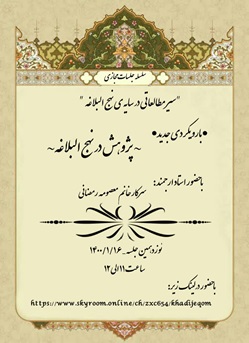 سلسله جلسات مجازی
"سیر مطالعاتی در سایه ی نهج البلاغه"
•با رویکردی جدید•
~پژوهش در نهج البلاغه~
با حضور استاد ارجمند:
سرکار خانم معصومه رمضانی
نوزدهمین جلسه_۱۴۰۰/۱/۱۶
ساعت ۱۱ الی ۱۲
با حضور در لینک زیر:
https://www.skyroom.online/ch/zxc654/khadijeqom